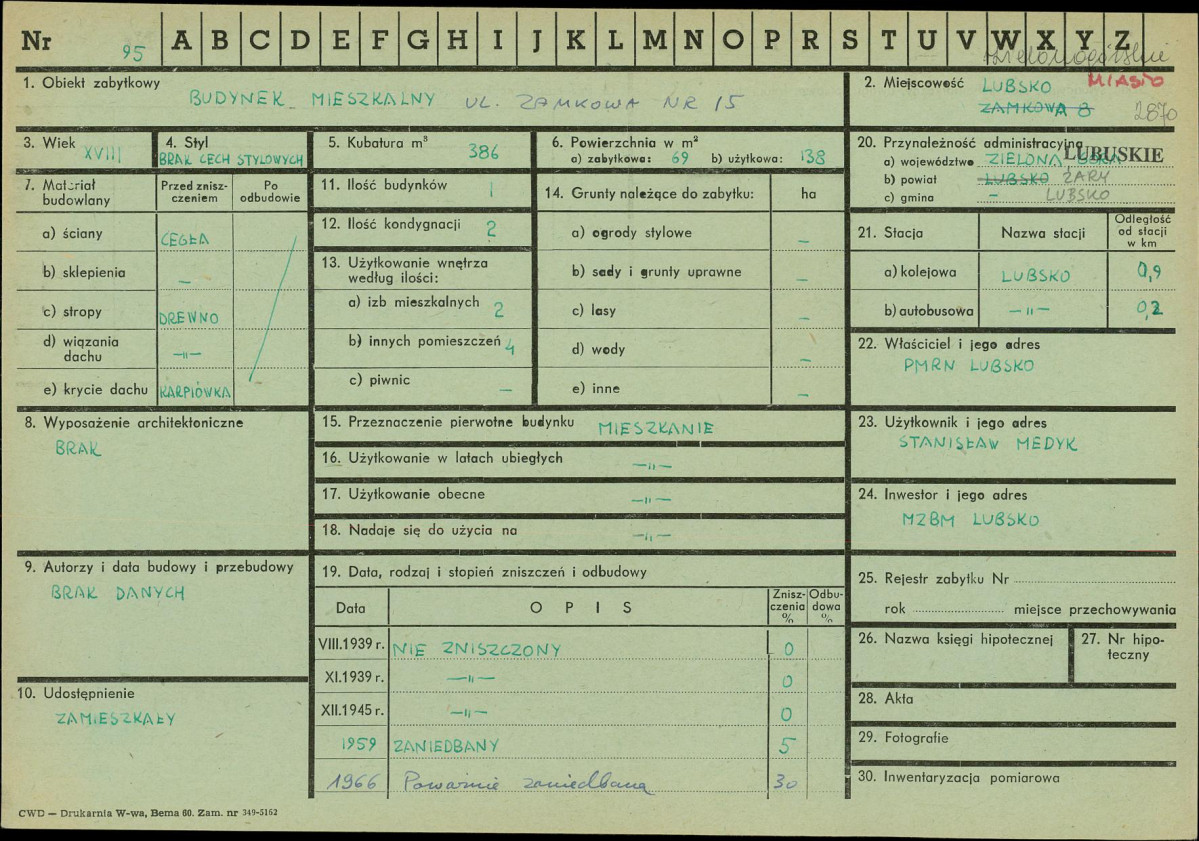 Nr 95 A B C D E F G H I J K L M N O P R S T U V W X Y Z
zielonogórskie
1. Obiekt zabytkowy
BUDYNEK MIESZKALNY UL. ZAMKOWA NR 15
2. Miejscowość LUBSKO MIASTO
ZAMKOWA 8 2870
3. Wiek XVIII
4. Styl
BRAK CECH STYLOWYCH
5. Kubatura m³
386
6. Powierzchnia w m²
a) zabytkowa: 69 b) użytkowa: 138
7. Materiał budowlany
Przed zniszczeniem
Po odbudowie
a) ściany CEGŁA
b) sklepienia —
c) stropy DREWNO
d) wiązania dachu —"—
e) krycie dachu KARPIÓWKA
8. Wyposażenie architektoniczne
BRAK
9. Autorzy i data budowy i przebudowy
BRAK DANYCH
10. Udostępnienie
ZAMIESZKAŁY
11. Ilość budynków 1
12. Ilość kondygnacji 2
13. Użytkowanie wnętrza
według ilości:
a) izb mieszkalnych 2
b) innych pomieszczeń 4
c) piwnic —
14. Grunty należące do zabytku: ha
a) ogrody stylowe —
b) sady i grunty uprawne —
c) lasy —
d) wody —
e) inne —
15. Przeznaczenie pierwotne budynku MIESZKANIE
16. Użytkowanie w latach ubiegłych —"—
17. Użytkowanie obecne —"—
18. Nadaje się do użycia na —"—
19. Data, rodzaj i stopień zniszczeń i odbudowy
Data OPIS Zniszczenia % Odbudowa %
VIII.1939 r. NIE ZNISZCZONY 0
XI.1939 r. —"— 0
XII.1945 r. —"— 0
1959 ZANIEDBANY 5
1966 Poważnie zaniedbana 30
20. Przynależność administracyjna
a) województwo ZIELONA GÓRA LUBUSKIE
b) powiat LUBSKO ŻARY
c) gmina — LUBSKO
21. Stacja Nazwa stacji Odległość od stacji w km
a) kolejowa LUBSKO 0,9
b) autobusowa —"— 0,2
22. Właściciel i jego adres
PMRN LUBSKO
23. Użytkownik i jego adres
STANISŁAW MEDYK
24. Inwestor i jego adres
MZBM LUBSKO
25. Rejestr zabytku Nr
rok miejsce przechowywania
26. Nazwa księgi hipotecznej
27. Nr hipoteczny
28. Akta
29. Fotografie
30. Inwentaryzacja pomiarowa
CWD — Drukarnia W-wa, Bema 60. Zam. nr 349-5162